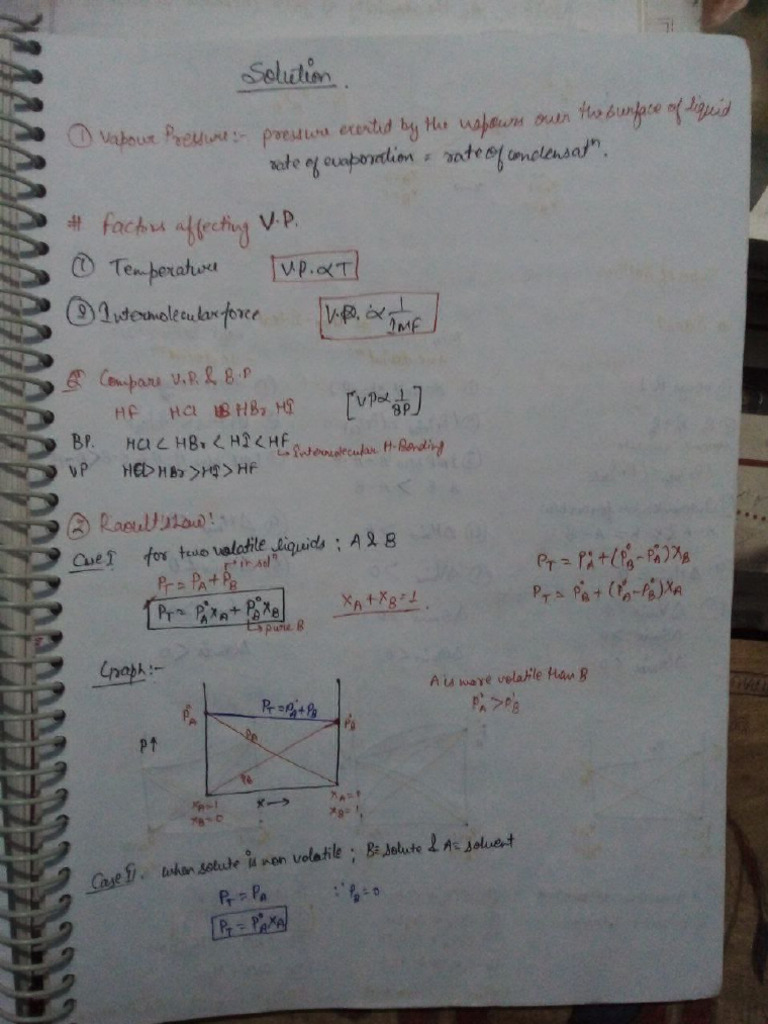 Solution.
① Vapour Pressure:- pressure exerted by the vapours over the surface of liquid
rate of evaporation = rate of condensatⁿ.
# factors affecting V.P.
① Temperature V.P. ∝ T
② Intermolecular force V.P. ∝ 1/IMF
Q Compare V.P. & B.P
HF HCl HBr HI [VP ∝ 1/BP]
BP. HCl < HBr < HI < HF
↳ Intermolecular H-Bonding
VP HCl > HBr > HI > HF
② Raoult's Law:
Case I for two volatile liquids ; A & B
P_T = P_A + P_B → in solⁿ
P_T = P°_A X_A + P°_B X_B
↳ pure B
X_A + X_B = 1.
P_T = P°_A + (P°_B - P°_A) X_B
P_T = P°_B + (P°_A - P°_B) X_A
Graph:-
A is more volatile than B
P°_A > P°_B
P_T = P_A + P_B
P°_A
P°_B
P↑
P_A
P_B
X_A = 1
X_B = 0
X →
X_B = 1,
Case II. when solute is non volatile ; B = solute & A = solvent
P_T = P_A ∵ P_B = 0
P_T = P°_A X_A